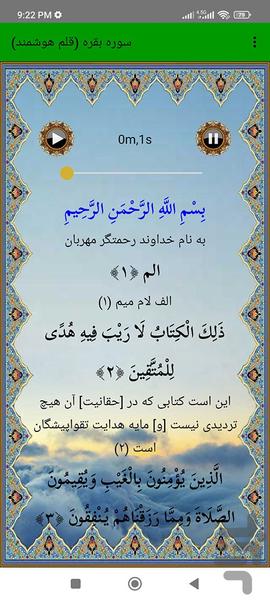 9:22 PM
سوره بقره (قلم هوشمند)
0m,1s
بِسْمِ اللَّهِ الرَّحْمَنِ الرَّحِيمِ
به نام خداوند رحمتگر مهربان
الم ﴿۱﴾
الف لام میم (۱)
ذَلِكَ الْكِتَابُ لَا رَيْبَ فِيهِ هُدًى
لِلْمُتَّقِينَ ﴿۲﴾
این است کتابی که در [حقانیت] آن هیچ
تردیدی نیست [و] مایه هدایت تقواپیشگان
است (۲)
الَّذِينَ يُؤْمِنُونَ بِالْغَيْبِ وَيُقِيمُونَ
الصَّلَاةَ وَمِمَّا رَزَقْنَاهُمْ يُنْفِقُونَ ﴿۳﴾